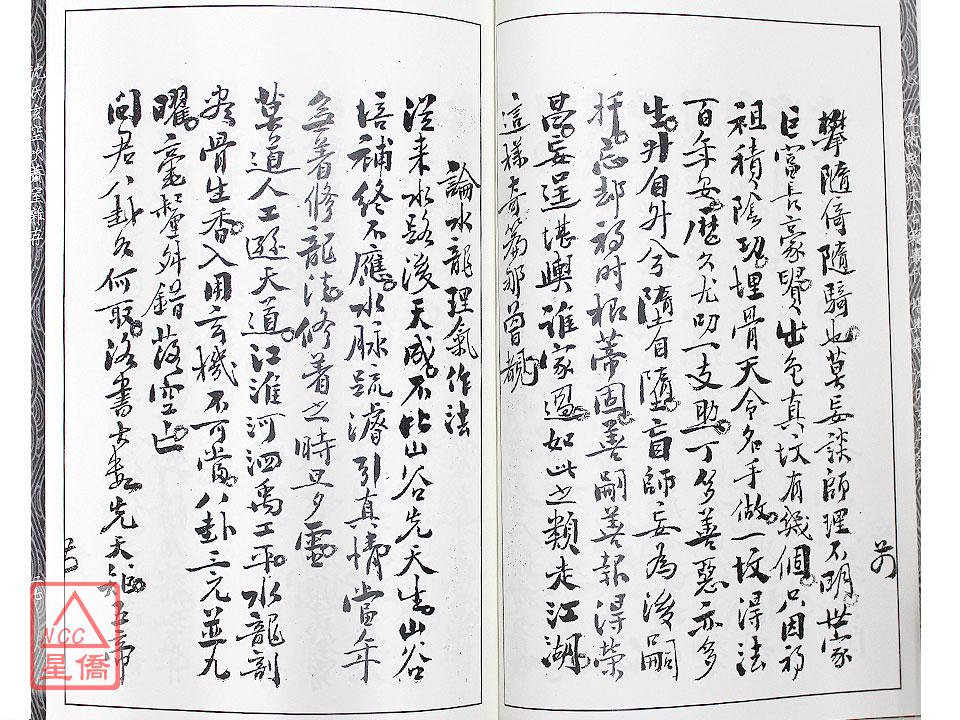 攀隨倚隨騎也莫妄談師理不明世家
巨富長豪賢出色真坟有幾個只因初
祖積陰功埋骨天令名手做一坟得法
百年安歷久尤叨一支助丁多善惡亦多
生升自升兮墮自墮盲師妄為後嗣
托忘却初時根蒂固善嗣善報得榮
昌妄逞堪輿誰家過如此之類走江湖
這樣古奇蒭那曾覩
論水龍理氣作法
從來水路後天成不比山谷先天生山谷
培補終不應水脉疏濬引真情當年
無着修龍法修着之時旦夕靈
莫道人工遜天道江淮河泗禹工平水龍剖
骨生香入用玄機不可當八卦三元並九
曜毫釐舛錯落空亡
問君八卦久何取洛書大數先天
NCC
星僑